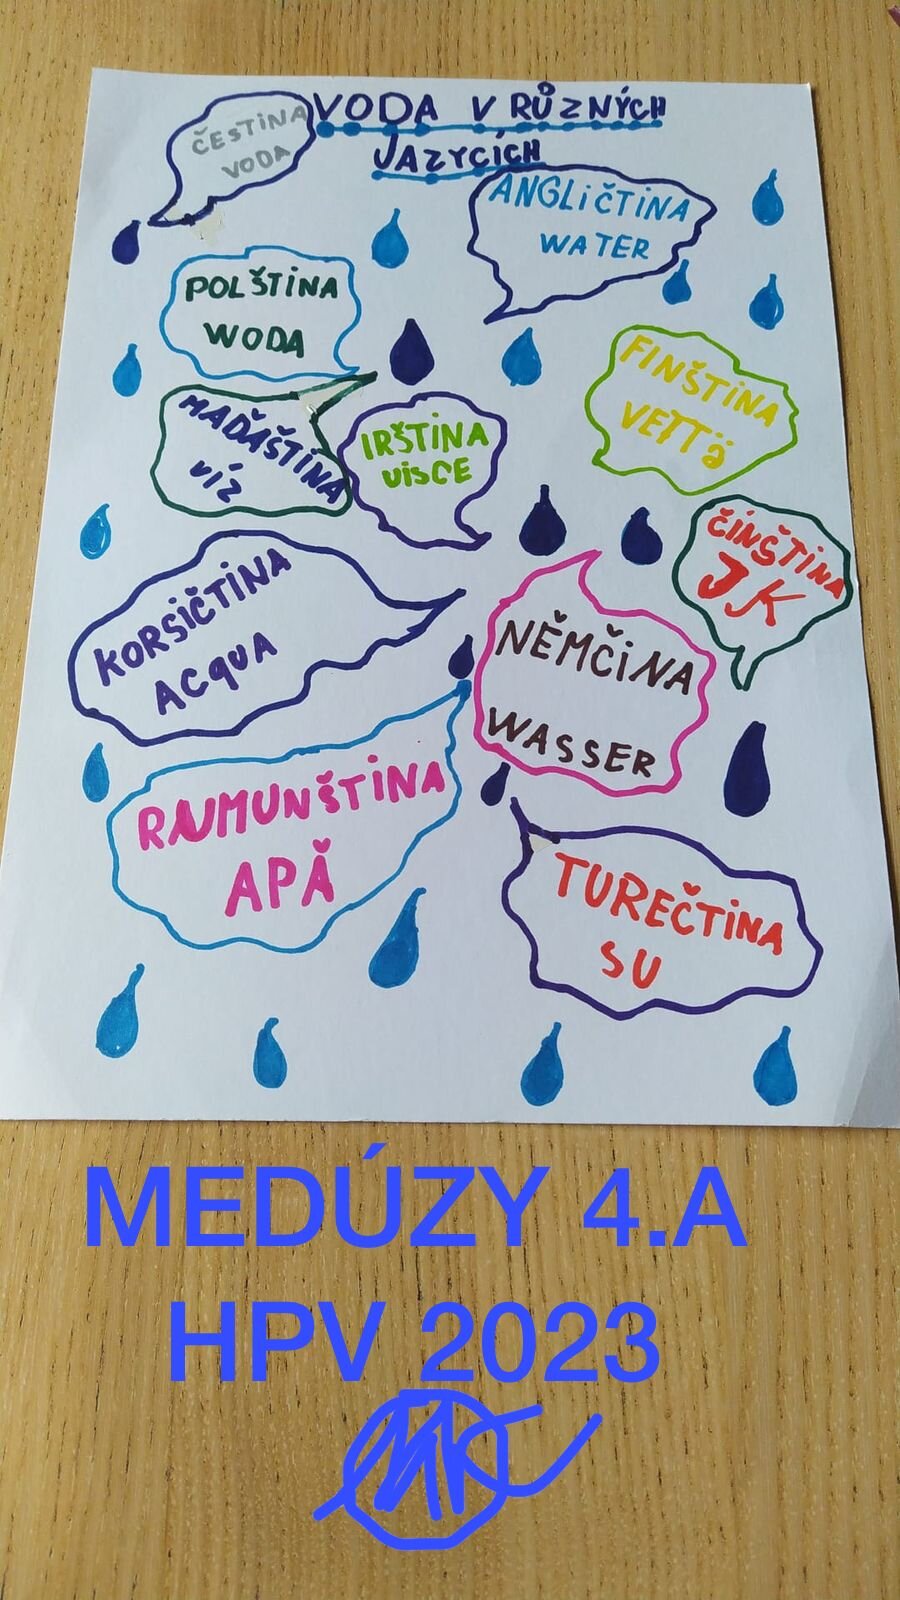 VODA V RŮZNÝCH
JAZYCÍCH
ČEŠTINA
VODA
ANGLIČTINA
WATER
POLŠTINA
WODA
FINŠTINA
VETTä
MAĎAŠTINA
víz
IRŠTINA
UISCE
ČÍNŠTINA
KORSIČTINA
ACQUA
NĚMČINA
WASSER
RJUMUNŠTINA
APĂ
TUREČTINA
SU
MEDÚZY 4.A
HPV 2023